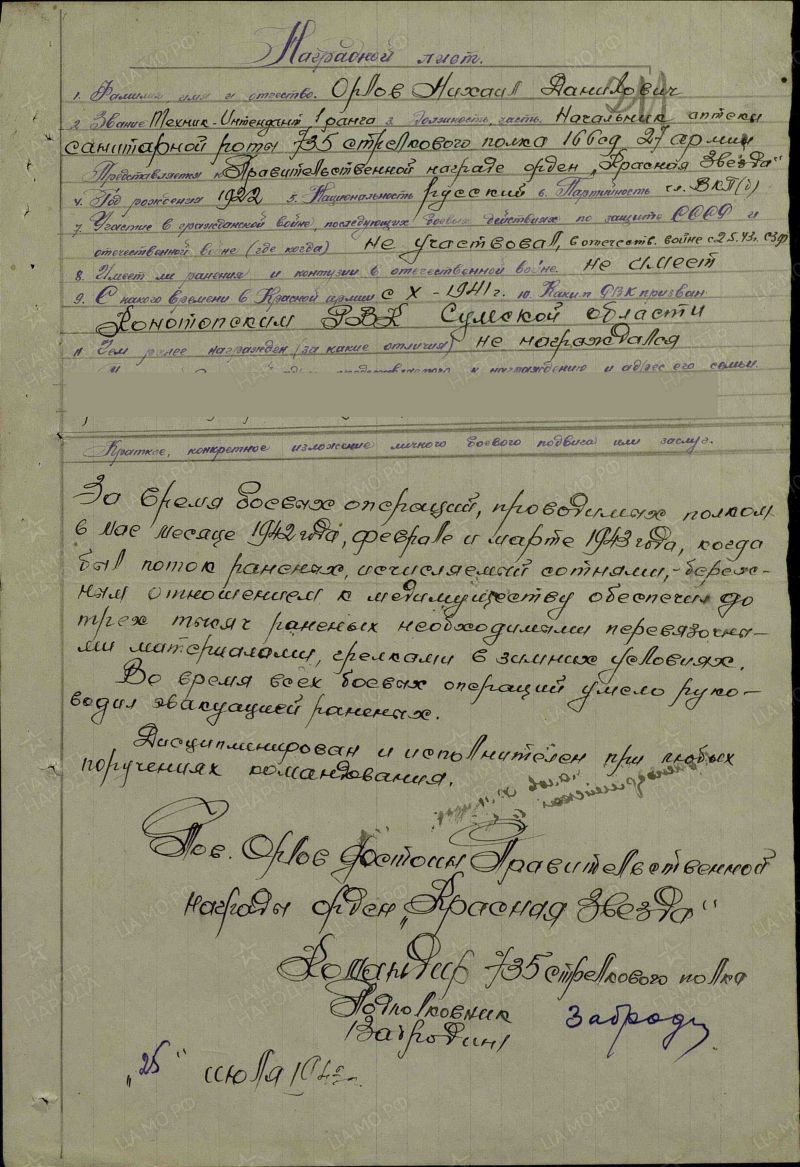 Наградной лист.
1. Фамилия имя и отчество. Орлов Михаил Данилович
2. Звание Техник-Интендант 1 ранга 3. должность, часть. Начальник аптеки
санитарной роты 735 стрелкового полка 166 сд 27 армии
Представляется к Правительственной награде орден „Красная Звезда"
4. Год рождения 1922 5. Национальность русский 6. Партийность чл. ВКП(б)
7. Участие в гражданской войне, последующих боевых действиях по защите СССР и
отечественной войне (где когда) не участвовал, в отечеств. войне с 2.5.43. СЗФ
8. Имеет ли ранения и контузии в отечественной войне. не имеет
9. С какого времени в Красной армии с X-1941 г. 10. Каким РВК призван
Конотопским РВК Сумской области
11. Чем ранее награжден (за какие отличия) не награждался
к награждению и адрес его семьи.
Краткое, конкретное изложение личного боевого подвига или заслуг.
За время боевых операций, проводимых полком
в мае месяце 1942 года, феврале и марте 1943 года, когда
был поток раненых, исчисляемый сотнями, - береж-
ным отношением к медимуществу обеспечил до
трех тысяч раненых необходимыми перевязочны-
ми материалами, грелками в зимних условиях.
Во время всех боевых операций умело руко-
водил эвакуацией раненых.
Дисциплинирован и исполнителен при любых
поручениях командования.
Тов. Орлов достоин Правительственной
награды орден „Красная Звезда"
Командир 735 стрелкового полка
Подполковник
Забродин
"25" июля 1943
ПАМЯТЬ НАРОДА
ЦАМО.РФ